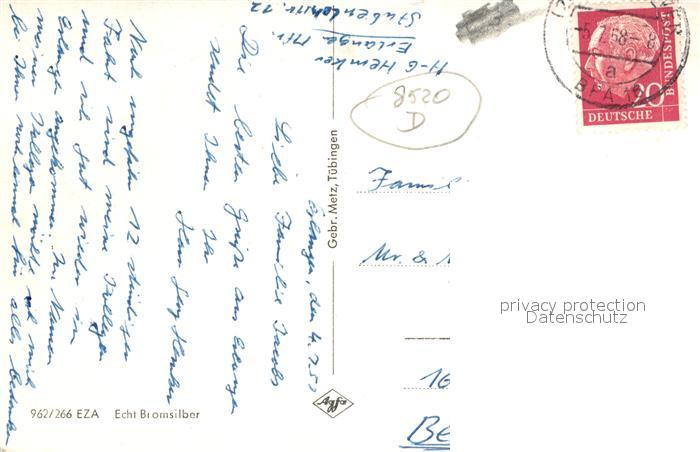 H-G Hemker
Erlangen / Mfr.
Stubenlohstr. 12
8520
D
Erlangen, den 4.7.58
Liebe Familie Jacobs
Die besten Grüße aus Erlangen
sendet Ihnen Ihr
Hans Georg Hemker
Nach ungefähr 12 stündiger
Fahrt sind meine Kollegen
und ich gut wieder in
Erlangen angekommen. Im Namen
meiner Kollegen möchte ich mich
bei Ihnen nochmals für alles bedanken
962/266 EZA Echt Bromsilber
Gebr. Metz, Tübingen
Agfa
Famil
Mr. &
16
Be
20
DEUTSCHE
BUNDESPOST
5.7.58-8
a
privacy protection
Datenschutz